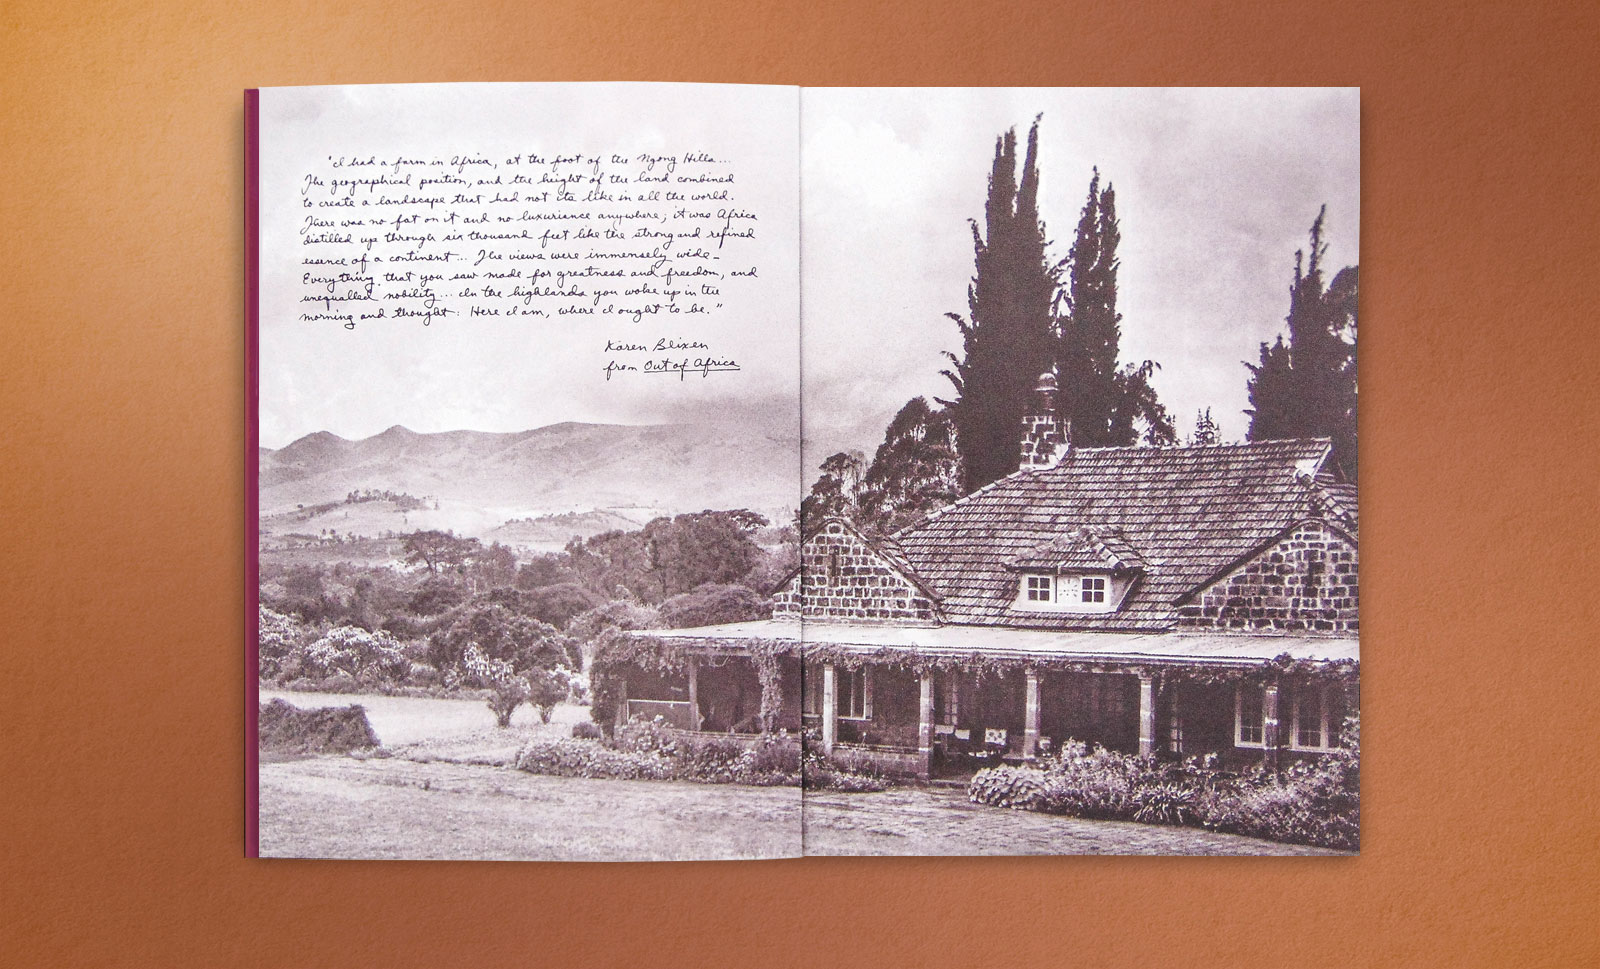 "I had a farm in Africa, at the foot of the Ngong Hills...
The geographical position, and the height of the land combined
to create a landscape that had not its like in all the world.
There was no fat on it and no luxuriance anywhere; it was Africa
distilled up through six thousand feet like the strong and refined
essence of a continent... The views were immensely wide-
Everything that you saw made for greatness and freedom, and
unequalled nobility... In the highlands you woke up in the
morning and thought: Here I am, where I ought to be."
Karen Blixen
from Out of Africa